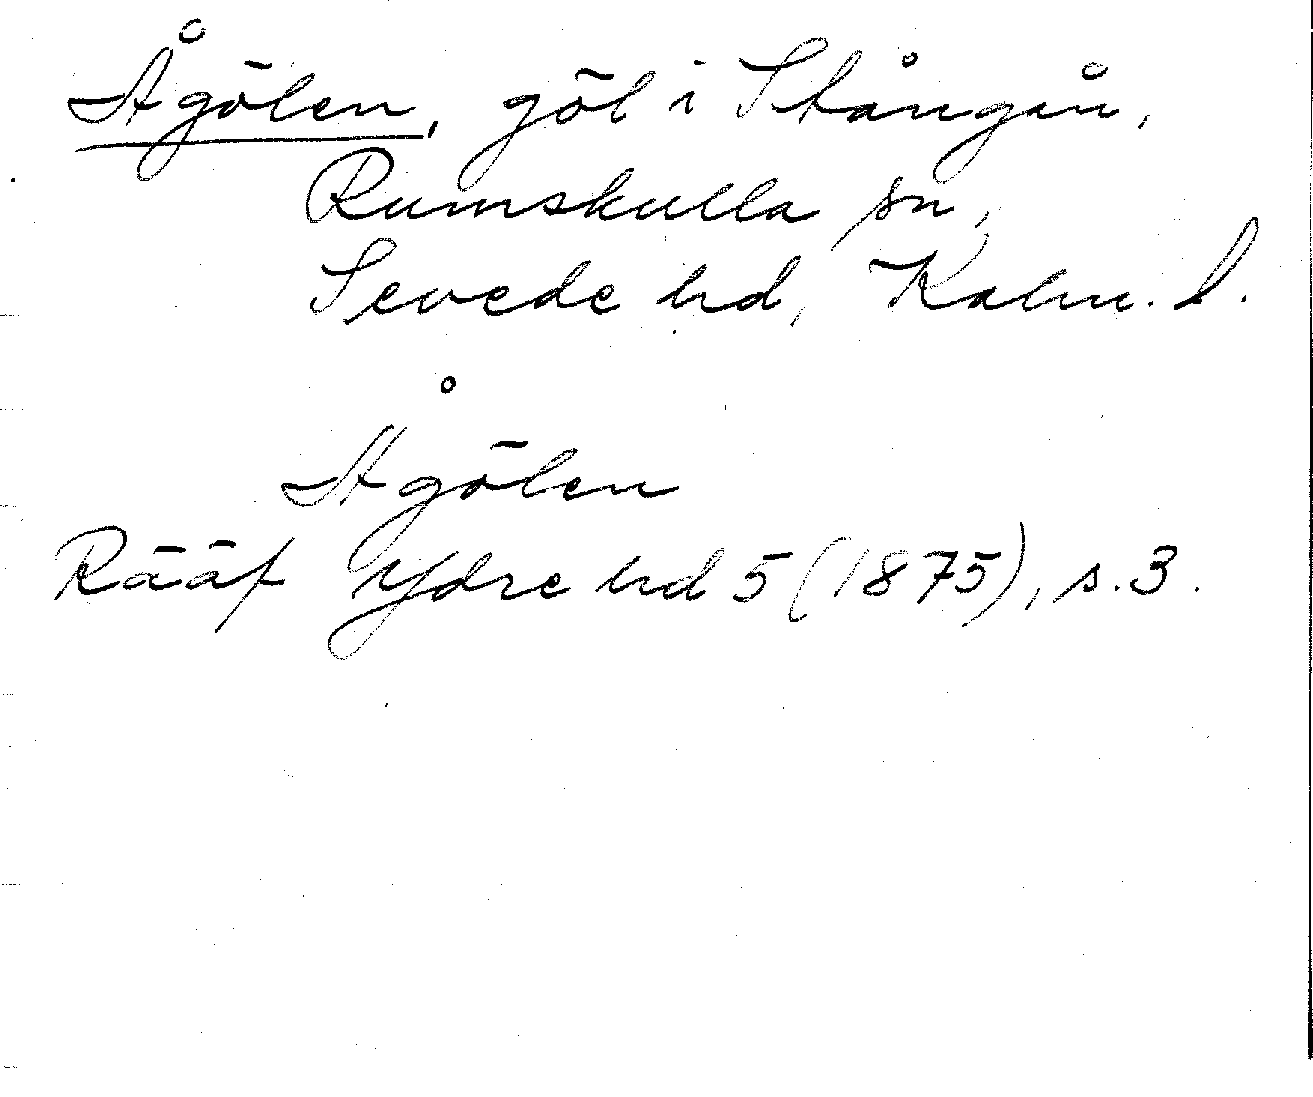 Ågölen, göl i Stångån,
Rumskulla sn,
Sevede hd, Kalm. l.
Ågölen
Rääf Ydre hd 5 (1875), s. 3.